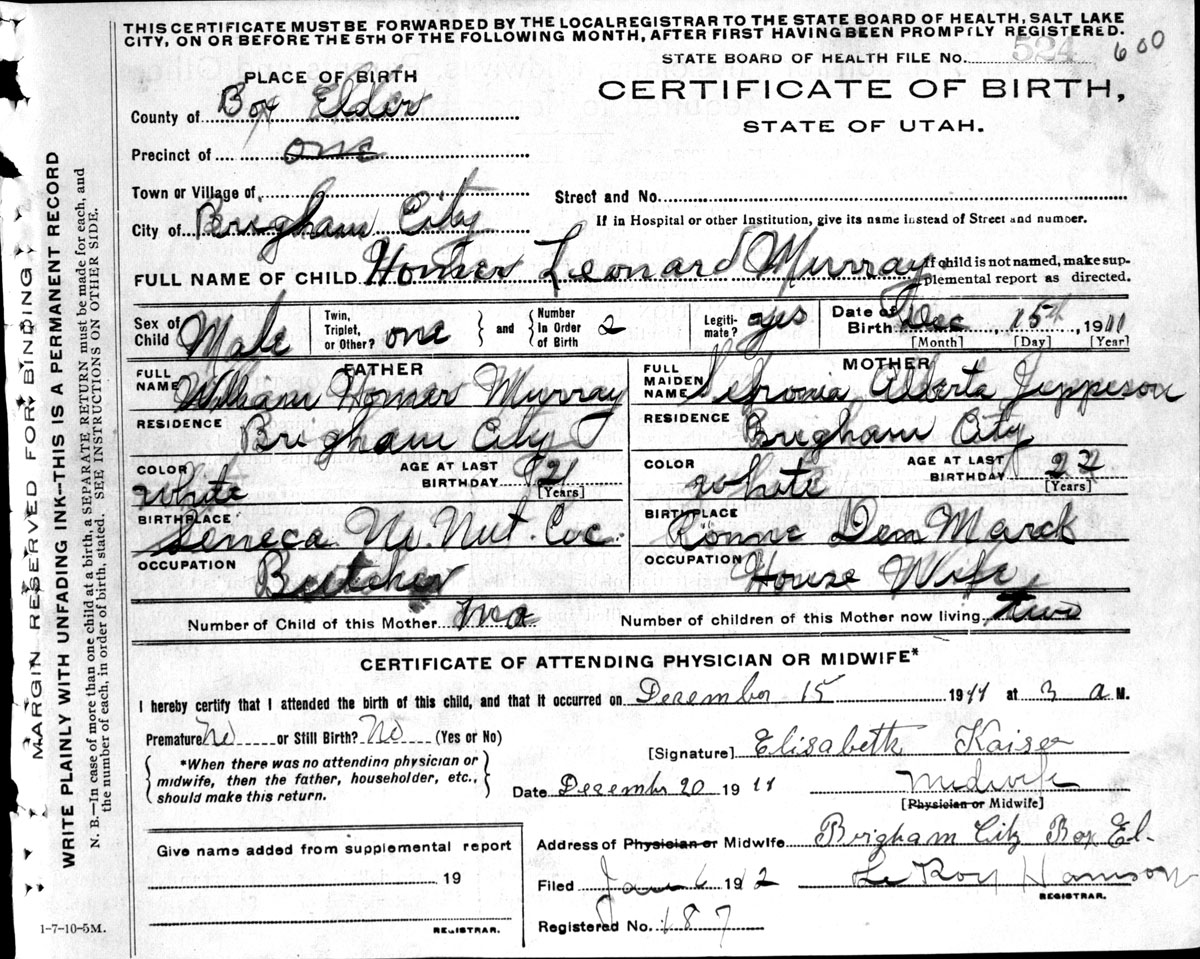 THIS CERTIFICATE MUST BE FORWARDED BY THE LOCAL REGISTRAR TO THE STATE BOARD OF HEALTH, SALT LAKE
CITY, ON OR BEFORE THE 5TH OF THE FOLLOWING MONTH, AFTER FIRST HAVING BEEN PROMPTLY REGISTERED.
STATE BOARD OF HEALTH FILE No. 524 600
PLACE OF BIRTH
CERTIFICATE OF BIRTH,
STATE OF UTAH.
County of Box Elder
Precinct of one
Town or Village of
Street and No.
City of Brigham City
If in Hospital or other Institution, give its name instead of Street and number.
FULL NAME OF CHILD Homer Leonard Murray
If child is not named, make sup-
plemental report as directed.
Sex of Child Male
Twin, Triplet, or Other? one and Number in Order of Birth 2
Legiti-mate? yes
Date of Birth Dec 15th, 1911
[Month] [Day] [Year]
FATHER
FULL NAME William Homer Murray
RESIDENCE Brigham City
COLOR White
AGE AT LAST BIRTHDAY 21 [Years]
BIRTHPLACE Seneca
OCCUPATION Butcher
MOTHER
FULL MAIDEN NAME Alberta Jeppeson
RESIDENCE Brigham City
COLOR White
AGE AT LAST BIRTHDAY 22 [Years]
BIRTHPLACE Ronne Den Marck
OCCUPATION House Wife
Number of Child of this Mother two
Number of children of this Mother now living two
CERTIFICATE OF ATTENDING PHYSICIAN OR MIDWIFE*
I hereby certify that I attended the birth of this child, and that it occurred on December 15 1911 at 3 a M.
Premature No or Still Birth? No (Yes or No)
*When there was no attending physician or
midwife, then the father, householder, etc.,
should make this return.
[Signature] Elisabeth Kaiser
Date December 20 1911 Midwife
[Physician or Midwife]
Give name added from supplemental report
19
REGISTRAR.
Address of Physician or Midwife Brigham City Box El.
Filed Jan 6 1912 Le Roy
REGISTRAR.
Registered No. 187
1-7-10-5M.
MARGIN RESERVED FOR BINDING
WRITE PLAINLY WITH UNFADING INK—THIS IS A PERMANENT RECORD
N. B.—In case of more than one child at a birth, a SEPARATE RETURN must be made for each, and
the number of each, in order of birth, stated. SEE INSTRUCTIONS ON OTHER SIDE.